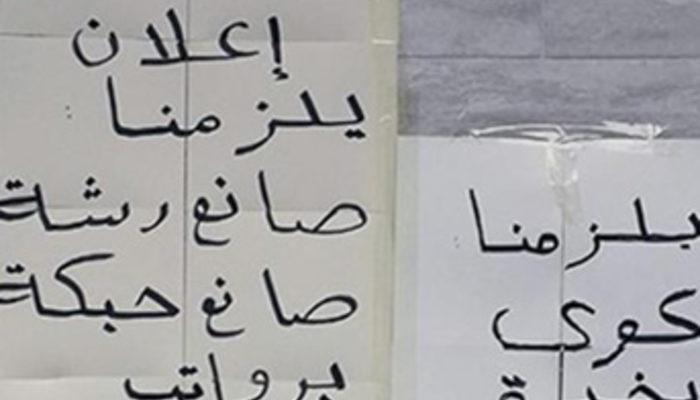 إعلان
يلزمنا :
صانع رشة
صانع حبكة
برواتب
يلزمنا :
كوى